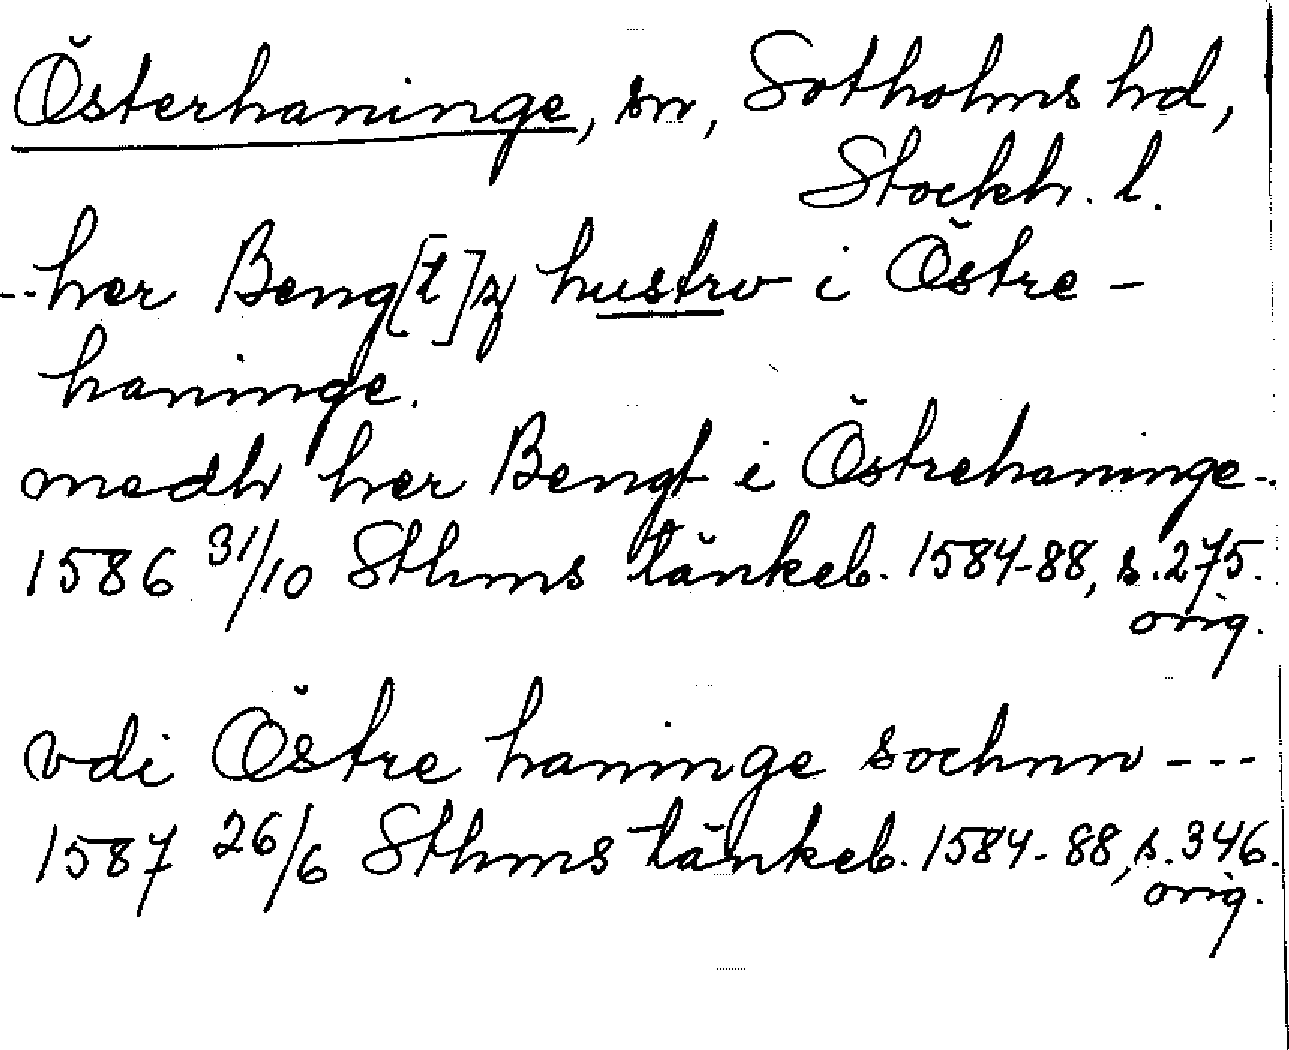 Österhaninge, sn, Sotholms hd,
Stockh. l.
--her Beng[t]z hustrv i Östre-
haninge.
medh her Bengt i Östrehaninge--
1586 31/10 Sthms tänkeb. 1584-88, s. 275.
orig.
vdi Östre haninge sochnn ---
1587 26/6 Sthms tänkeb. 1584-88, s. 346.
orig.